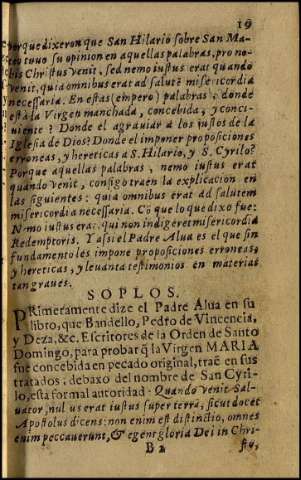 19
porque dixeron que San Hilario sobre San Ma-
teo tuuo su opinion en aquellas palabras, pro no-
bis Christus venit, sed nemo iustus erat quando
venit, quia omnibus erat ad salutē misericordia
necessaria. En estas (empero) palabras, donde
està la Virgen manchada, concebida, y conci-
uiente? Donde el agrauiar a los justos de la
Iglesia de Dios? Donde el imponer proposiciones
erroneas, y hereticas a S. Hilario, y S. Cyrilo?
Porque aquellas palabras, nemo iustus erat
quando venit, consigo traen la explicacion en
las siguientes: quia omnibus erat ad salutem
misericordia necessaria. Cō que lo que dixo fue:
Nemo iustus erat, qui non indigeret misericordia
Redemptoris. Y assi el Padre Alua es el que sin
fundamento les impone proposiciones erroneas,
y hereticas, y leuanta testimonios en materias
tan graues.
SOPLOS.
PRimeramente dize el Padre Alua en su
libro, que Bandello, Pedro de Vincencia,
y Deza, &c. Escritores de la Orden de Santo
Domingo, para probar q̄ la Virgen MARIA
fue concebida en pecado original, traē en sus
tratados, debaxo del nombre de San Cyri-
lo, esta formal autoridad: Quando venit Sal-
uator, nullus erat iustus super terrā, sicut docet
Apostolus dicens: non enim est distinctio, omnes
enim peccauerunt, & egent gloria Dei in Chri-
B 2
sto,